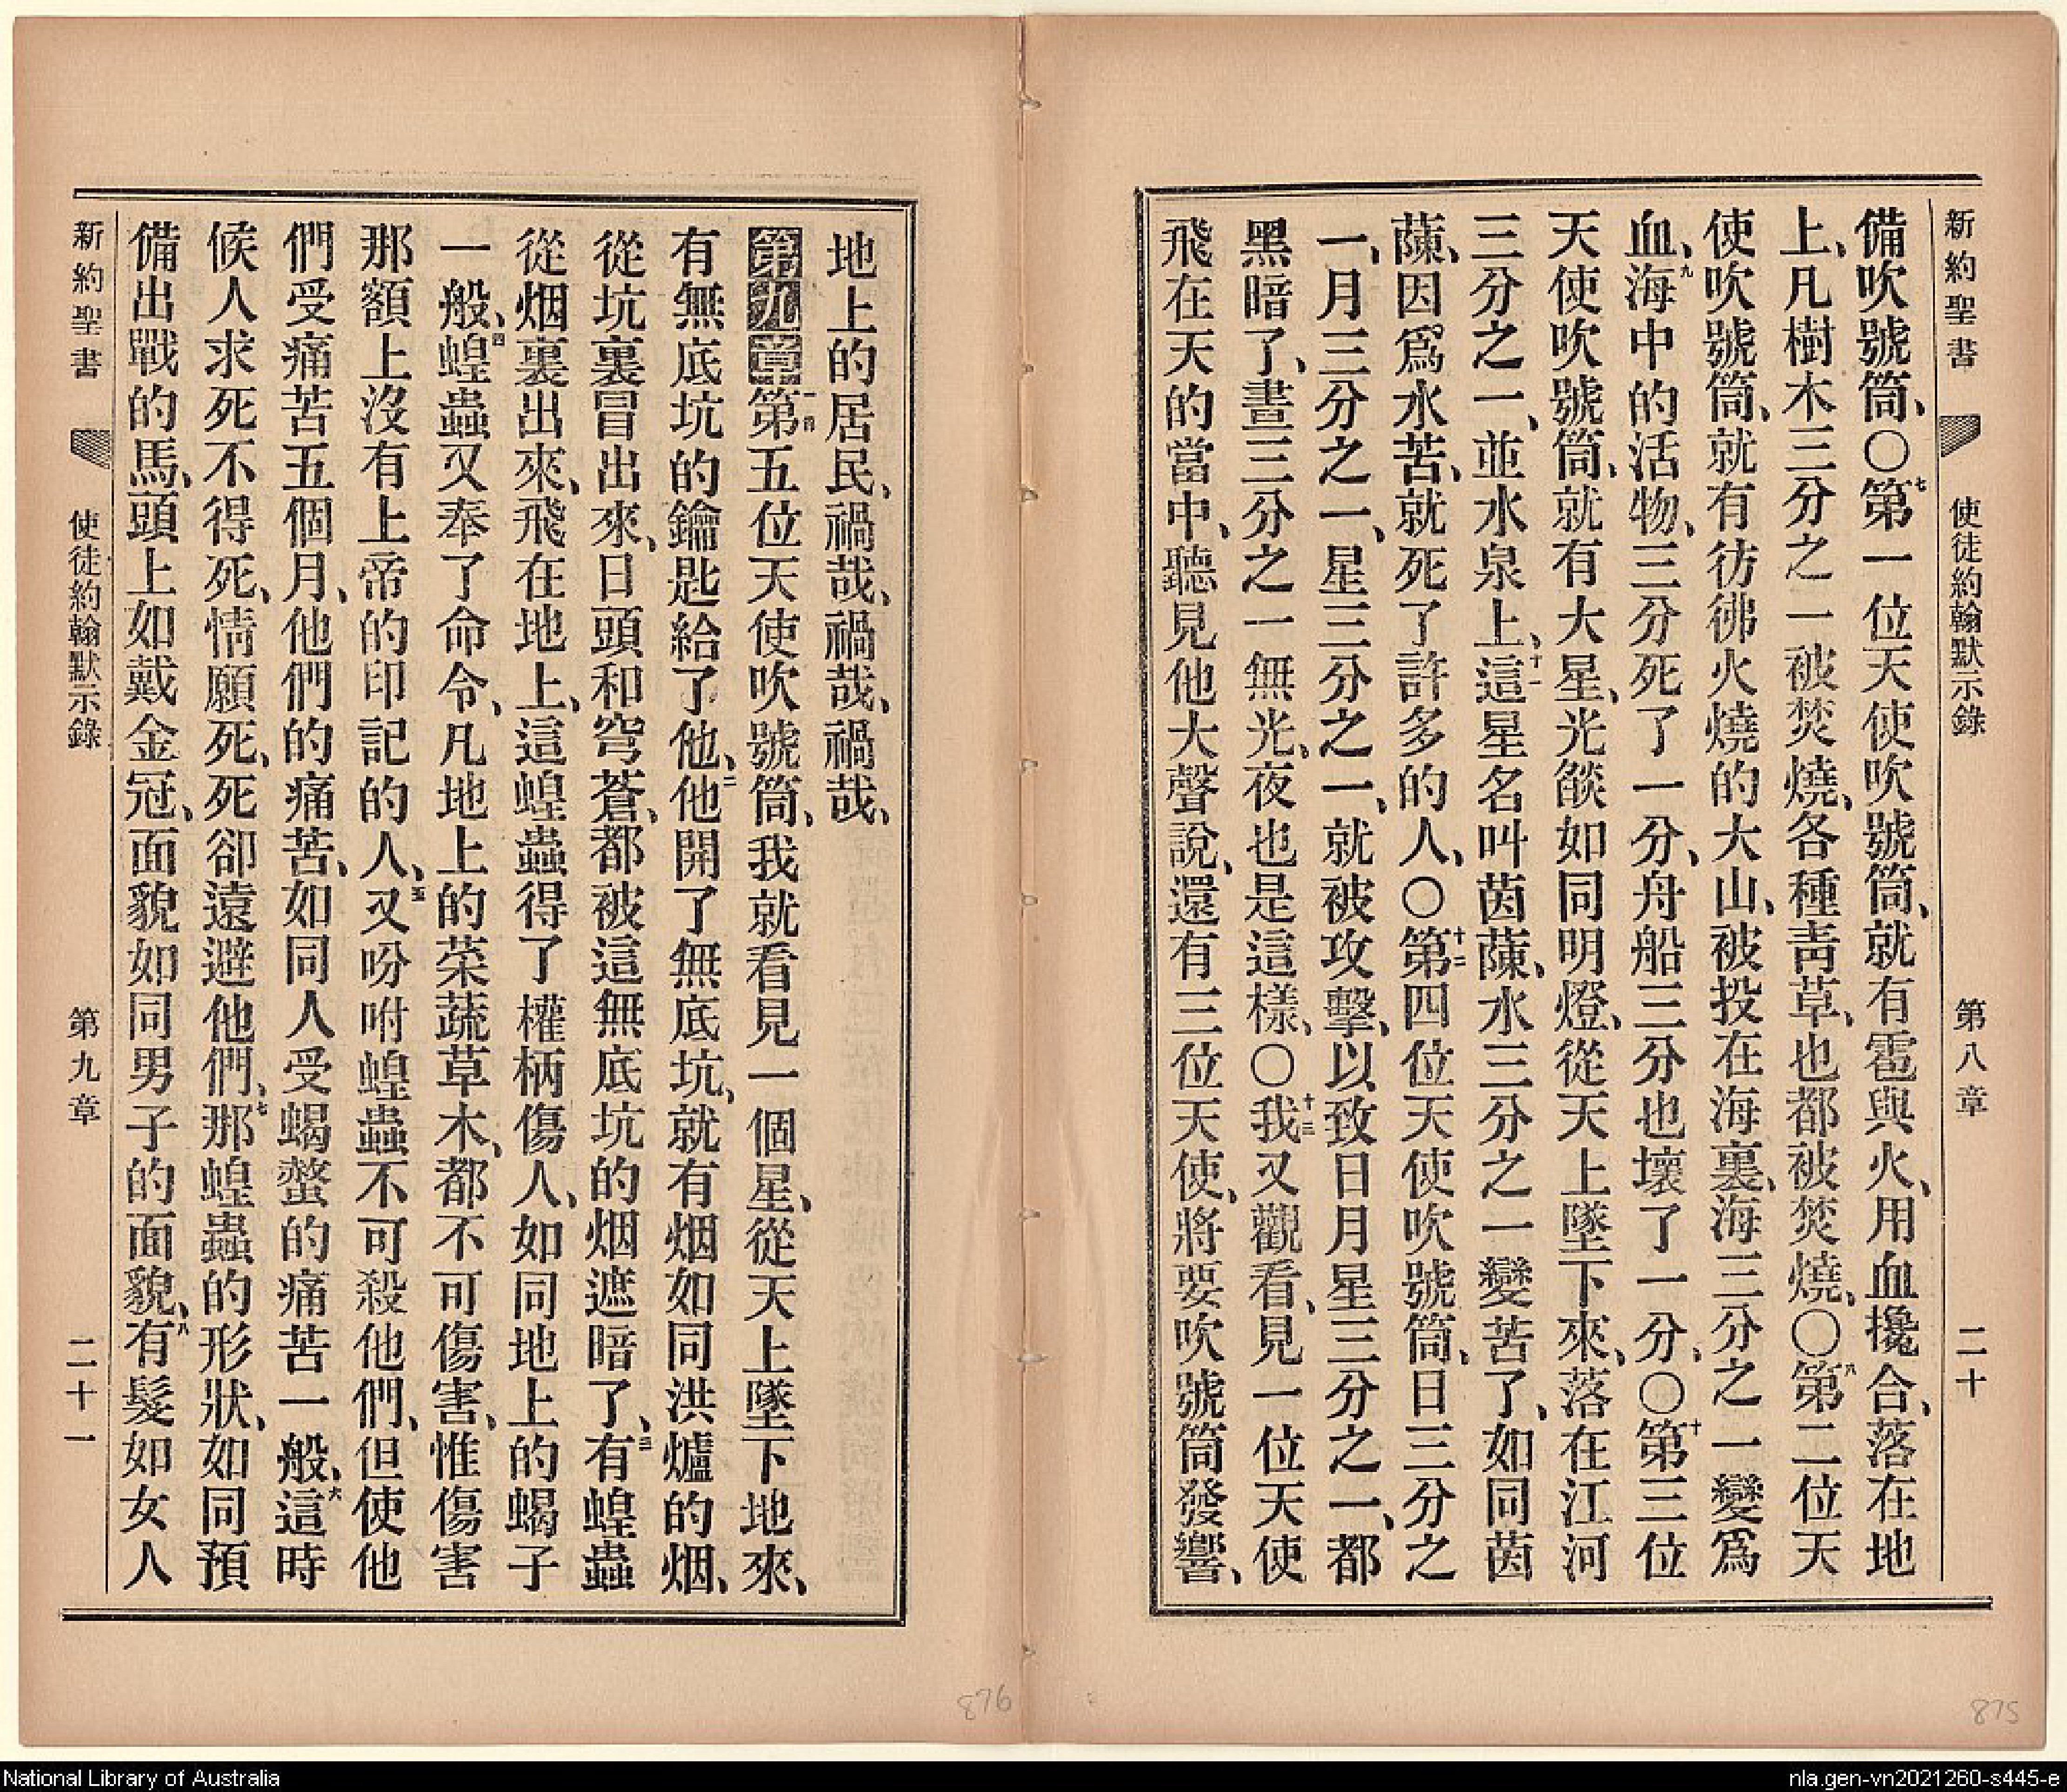 新約聖書 使徒約翰默示錄 第八章 二十
備吹號筒、○七第一位天使吹號筒、就有雹與火、用血攙合、落在地
上、凡樹木三分之一被焚燒、各種靑草、也都被焚燒、○八第二位天
使吹號筒、就有彷彿火燒的大山、被投在海裏、海三分之一變爲
血、九海中的活物、三分死了一分、舟船三分也壞了一分、○十第三位
天使吹號筒、就有大星、光燄如同明燈、從天上墜下來、落在江河
三分之一、並水泉上、十一這星名叫茵蔯、水三分之一變苦了、如同茵
蔯、因爲水苦、就死了許多的人、○十二第四位天使吹號筒、日三分之
一、月三分之一、星三分之一、就被攻擊、以致日月星三分之一、都
黑暗了、晝三分之一無光、夜也是這樣、○十三我又觀看、見一位天使
飛在天的當中、聽見他大聲說、還有三位天使、將要吹號筒發響、
地上的居民、禍哉、禍哉、禍哉、
第九章 一第五位天使吹號筒、我就看見一個星、從天上墜下地來、
有無底坑的鑰匙給了他、二他開了無底坑、就有烟如同洪爐的烟、
從坑裏冒出來、日頭和穹蒼、都被這無底坑的烟遮暗了、三有蝗蟲
從烟裏出來、飛在地上、這蝗蟲得了權柄傷人、如同地上的蝎子
一般、四蝗蟲又奉了命令、凡地上的菜蔬草木、都不可傷害、惟傷害
那額上沒有上帝的印記的人、五又吩咐蝗蟲不可殺他們、但使他
們受痛苦五個月、他們的痛苦、如同人受蝎螫的痛苦一般、六這時
候人求死不得死、情願死、死卻遠避他們、七那蝗蟲的形狀、如同預
備出戰的馬、頭上如戴金冠、面貌如同男子的面貌、八有髮如女人
新約聖書 使徒約翰默示錄 第九章 二十一
876
875
National Library of Australia
nla.gen-vn2021260-s445-e